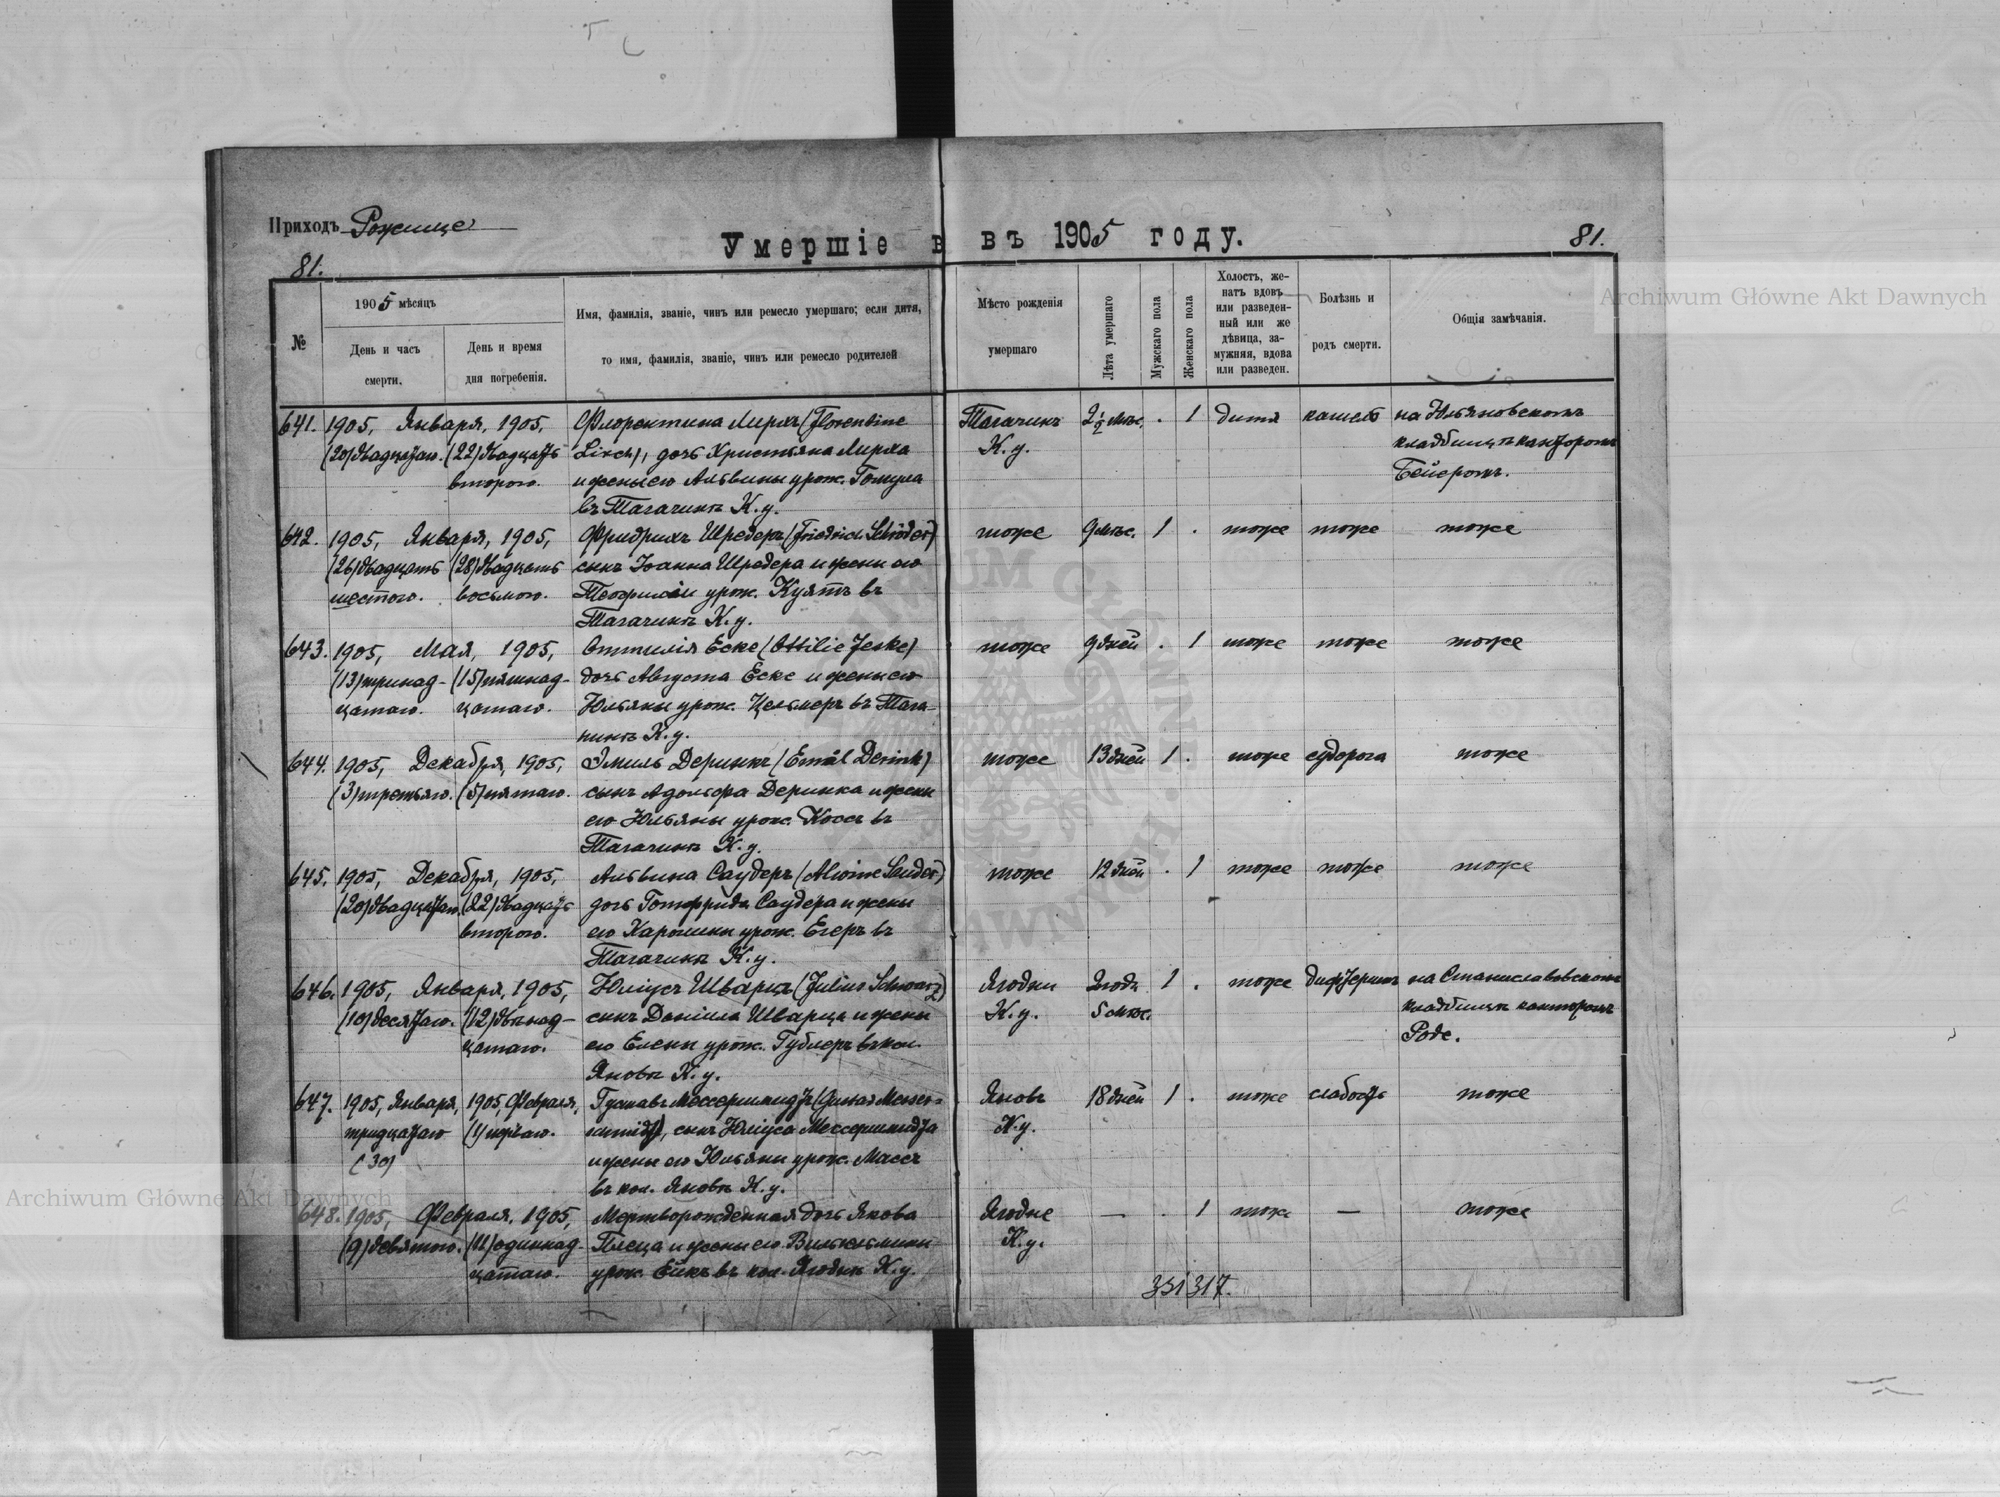 Приходъ Рожище
Умершіе въ 1905 году.
81.
81.
№
1905 мѣсяцъ
День и часъ смерти.
День и время дня погребенія.
Имя, фамилія, званіе, чинъ или ремесло умершаго; если дитя,
то имя, фамилія, званіе, чинъ или ремесло родителей
Мѣсто рожденія умершаго
Лѣта умершаго
Мужскаго пола
Женскаго пола
Холостъ, же-
натъ вдовъ
или разведен-
ный или же
дѣвица, за-
мужняя, вдова
или разведен.
Болѣзнь и родъ смерти.
Общія замѣчанія.
641. 1905, Января, 1905, Флорентина Лирхъ (Florentine Тагачинъ 2½ мѣс. . 1 дитя кашель на Юльяновскомъ
(20) двадцатаго. (22) двадцать Lirch), дочь Христьяна Лирха К. у. кладбищѣ канторомъ
второго. и жены его Альвины урож. Гомула Бейеромъ.
въ Тагачинѣ К. у.
642. 1905, Января, 1905, Фридрихъ Шредеръ (Friedrich Schröder) тоже 9 мѣс. 1 . тоже тоже тоже
(26) двадцать (28) двадцать сынъ Іоанна Шредера и жены его
шестого. восьмого. Теофиліи урож. Куятъ въ
Тагачинѣ К. у.
643. 1905, Мая, 1905, Оттилія Еске (Ottilie Jeske) тоже 9 дней . 1 тоже тоже тоже
(13) тринад- (15) пятнад- дочь Августа Еске и жены его
цатаго. цатаго. Юльяны урож. Цельмеръ въ Тага-
чинѣ К. у.
644. 1905, Декабря, 1905, Эмиль Деринкъ (Emil Derink) тоже 13 дней 1 . тоже судорога тоже
(3) третьяго. (5) пятаго. сынъ Адольфа Деринка и жены
его Юльяны урож. Коссъ въ
Тагачинѣ К. у.
645. 1905, Декабря, 1905, Альвина Саудеръ (Alwine Sauder) тоже 12 дней . 1 тоже тоже тоже
(20) двадцатаго. (22) двадцать дочь Готфрида Саудера и жены
второго. его Каролины урож. Егеръ въ
Тагачинѣ К. у.
646. 1905, Января, 1905, Юліусъ Шварцъ (Julius Schwarz) Ягодки 2 года 1 . тоже дифтеритъ на Станиславовскомъ
(10) десятаго. (12) двѣнад- сынъ Даніила Шварца и жены К. у. 5 мѣс. кладбищѣ канторомъ
цатаго. его Елены урож. Гублеръ въ кол. Роде.
Яновѣ К. у.
647. 1905, Января, 1905, Февраля, Густавъ Мессершмидтъ (Gustav Messer- Яновъ 18 дней 1 . тоже слабость тоже
тридцатаго (1) перваго. schmidt), сынъ Юліуса Мессершмидта К. у.
(30) и жены его Юльяны урож. Массъ
въ кол. Яновѣ К. у.
648. 1905, Февраля, 1905, Мертворожденная дочь Якова Ягодне — . 1 тоже — тоже
(9) девятого. (11) одиннад- Плеца и жены его Вильгельмины К. у.
цатаго. урож. Ейкъ въ кол. Ягоднѣ К. у.
331 317.
Archiwum Główne Akt Dawnych
Archiwum Główne Akt Dawnych